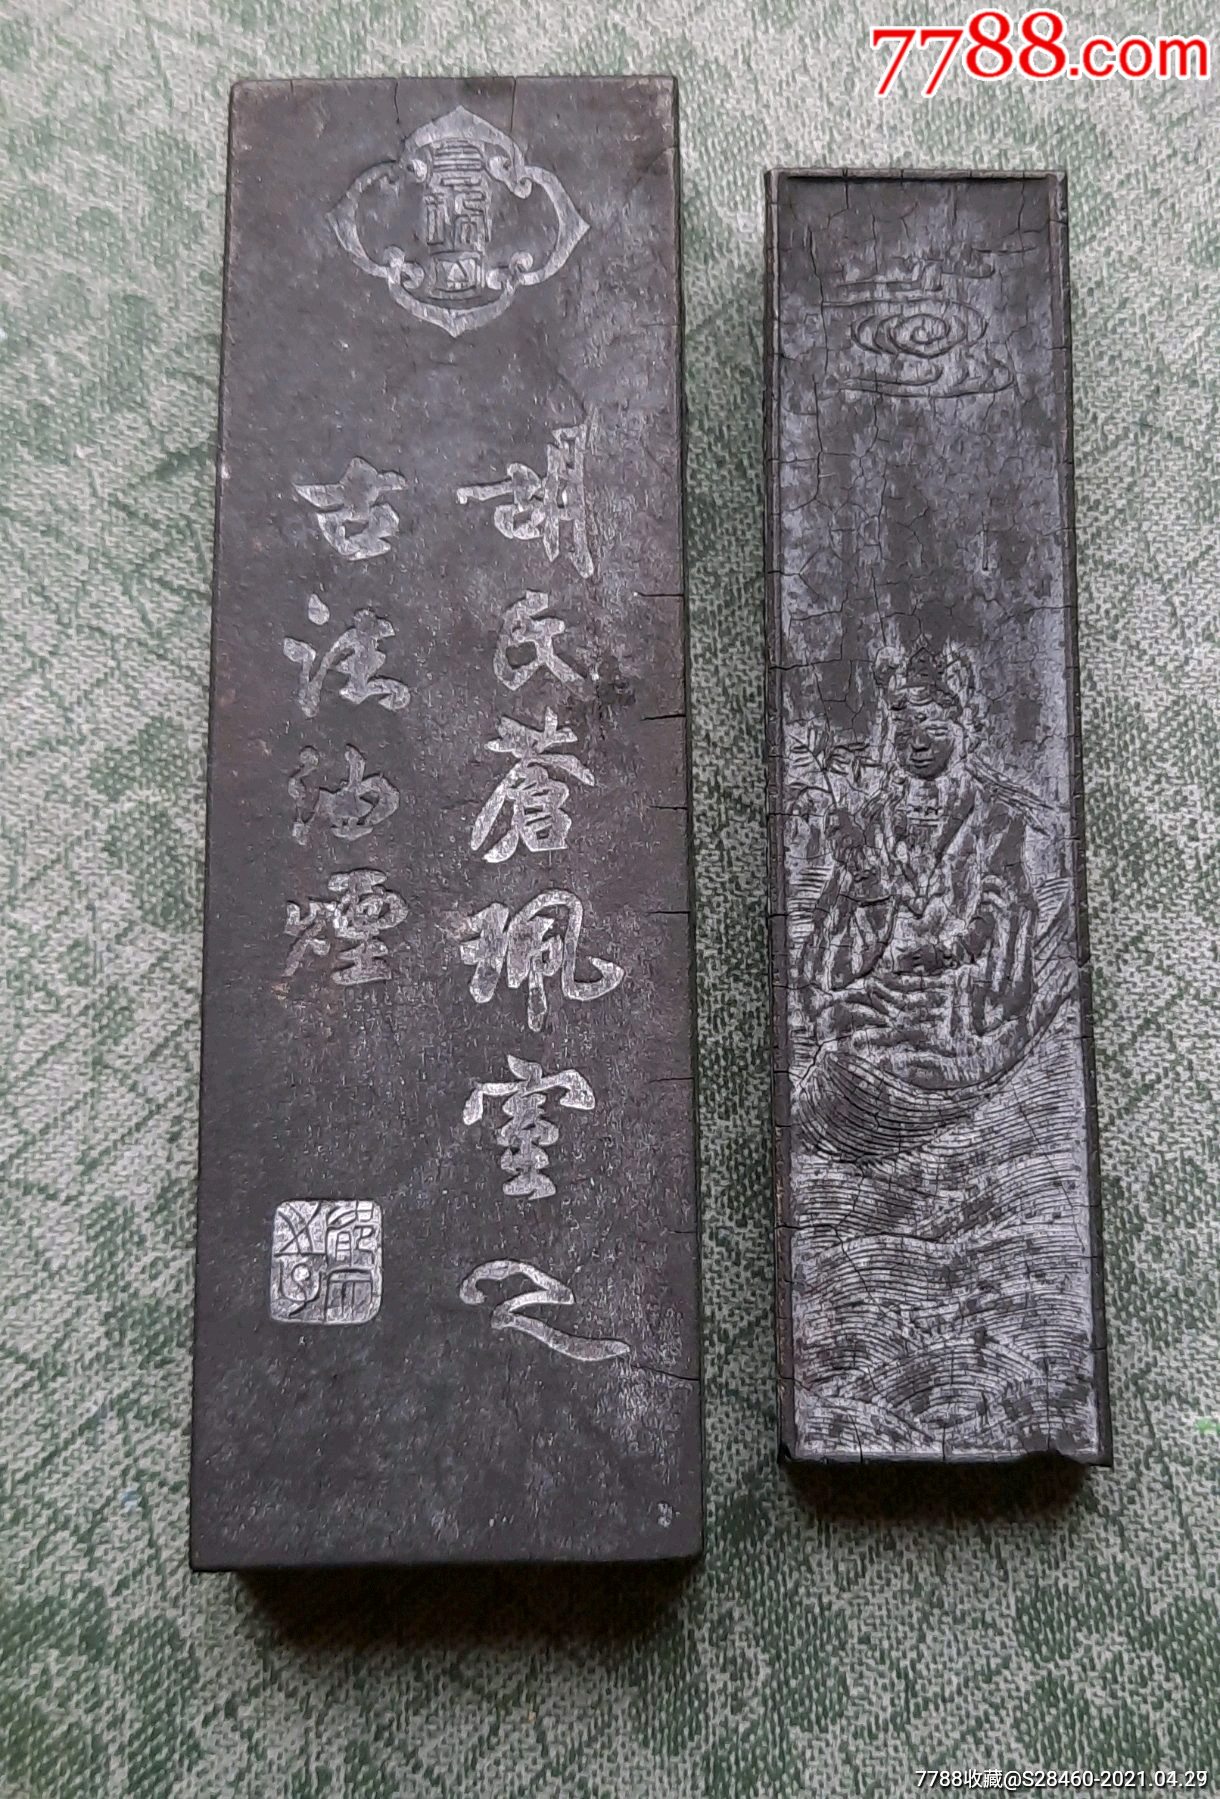 7788.com
胡氏蒼珮室之
古法油煙
7788收藏@S28460-2021.04.29